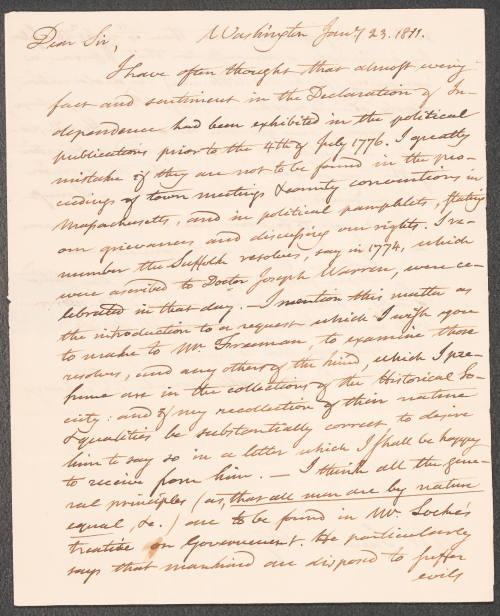 Washington Jany 23. 1811.
Dear Sir,
I have often thought that almost every
fact and sentiment in the Declaration of In-
dependence had been exhibited in the political
publications prior to the 4th of July 1776. I greatly
mistake if they are not to be found in the pro-
ceedings of town meetings & county conventions in
Massachusetts, and in political pamphlets, stating
our grievances and discussing our rights. I re-
member the Suffolk resolves, say in 1774, which
were ascribed to Doctor Joseph Warren, were ce-
lebrated in that day. — I mention this matter as
the introduction to a request which I wish you
to make to Mr. Freeman, to examine those
resolves, and any others of the kind, which I pre-
sume are in the collections of the Historical So-
ciety: and if my recollection of their nature
& qualities be substantially correct, to desire
him to say so in a letter which I shall be happy
to receive from him. — I think all the gene-
ral principles (as, that all men are by nature
equal, &c.) are to be found in Mr. Locke's
treatise on Government. He particularly
says that mankind are disposed to suffer
evils